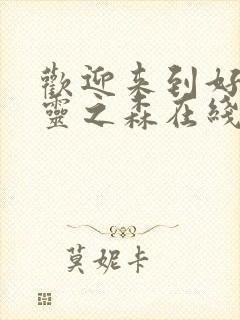 歡迎来到好
靈之森在綫
莫妮卡